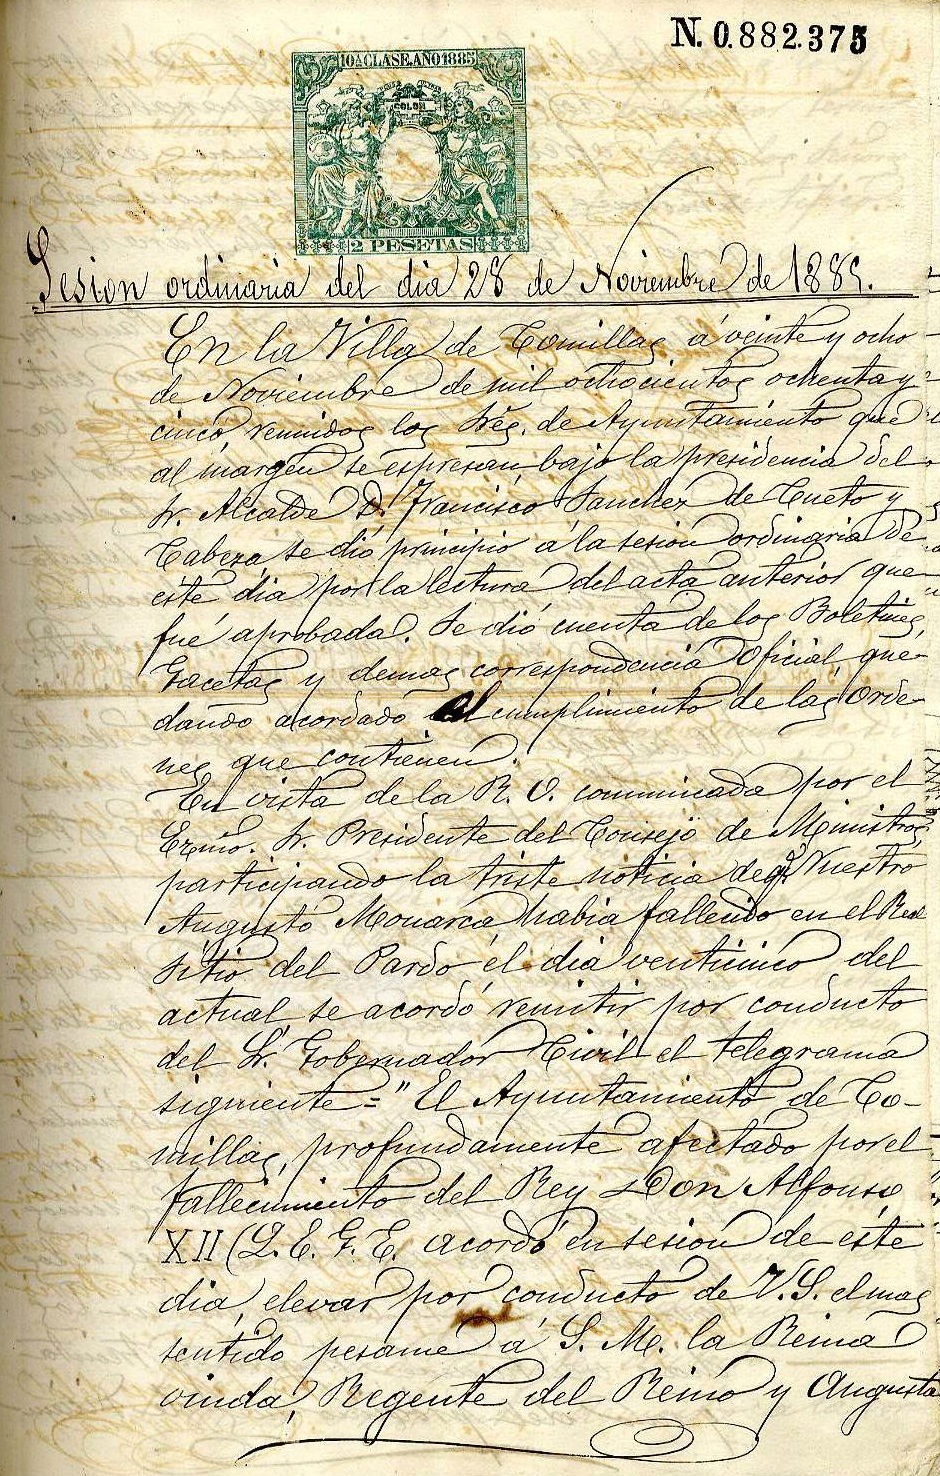 N. 0.882.375
10ª CLASE. AÑO 1885
COLON
2 PESETAS
Sesion ordinaria del dia 28 de Noviembre de 1885.
En la Villa de Comillas á veinte y ocho
de Noviembre de mil ochocientos ochenta y
cinco, reunidos los Sres. de Ayuntamiento que
al margen se espresan bajo la presidencia del
Sr. Alcalde D. Francisco Sanchez de Cueto y
Cabeza se dió principio á la sesion ordinaria de
este dia por la lectura del acta anterior que
fué aprobada. Se dió cuenta de los Boletines,
Gacetas y demas correspondencia Oficial, que-
dando acordado el cumplimiento de las Orde-
nes que contienen.
En vista de la R. O. comunicada por el
Ecmo. Sr. Presidente del Consejo de Ministros,
participando la triste noticia de q.e Nuestro
Augusto Monarca habia fallecido en el Real
Sitio del Pardo el dia venticinco del
actual se acordó remitir por conducto
del Sr. Gobernador Civil el telegrama
siguiente = "El Ayuntamiento de Co-
millas, profundamente afectado por el
fallecimiento del Rey Don Alfonso
XII (Q. E. G. E. acordó en sesion de éste
dia, elevar por conducto de V. S. el mas
sentido pesame á S. M. la Reina
viuda, Regente del Reino y Augusta